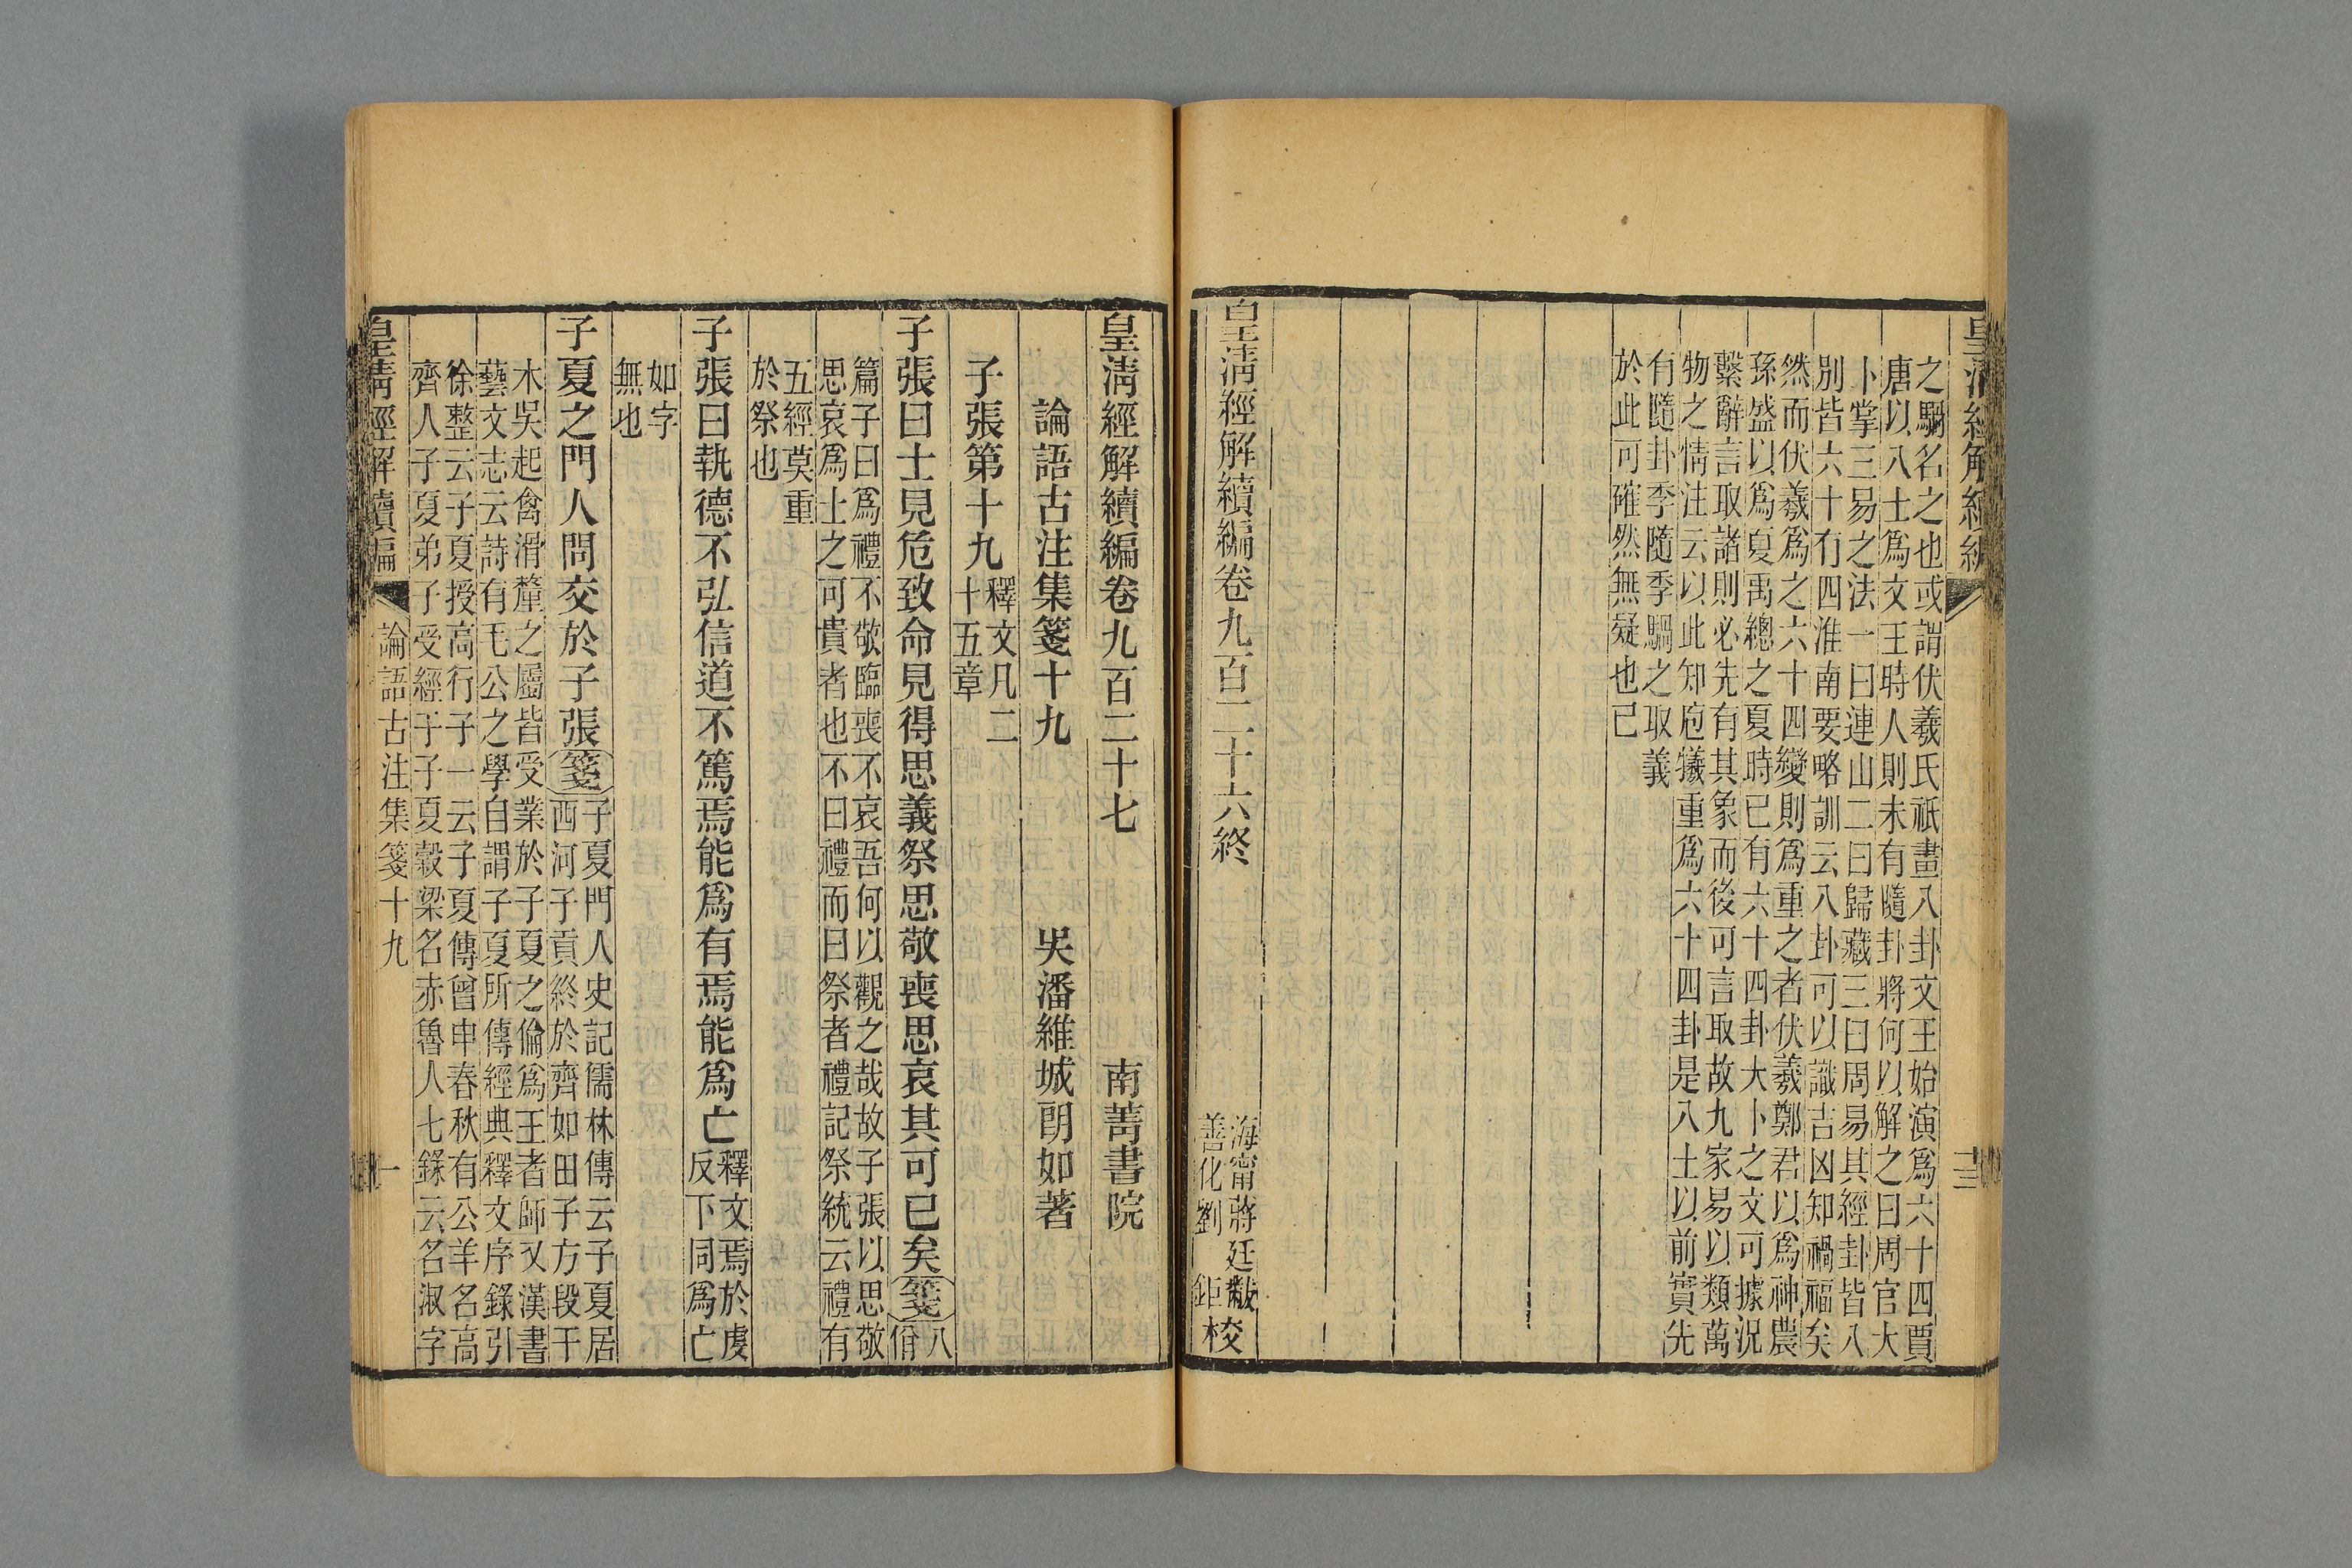 皇清經解續編
十三
之騆名之也或謂伏羲氏祇畫八卦文王始演爲六十四賈
唐以八士爲文王時人則未有隨卦將何以解之曰周官大
卜掌三易之法一曰連山二曰歸藏三曰周易其經卦皆八
別皆六十有四淮南要略訓云八卦可以識吉凶知禍福矣
然而伏羲爲之六十四變則爲重之者伏羲鄭君以爲神農
孫盛以爲夏禹總之夏時已有六十四卦大卜之文可據況
繫辭言取諸則必先有其象而後可言取故九家易以類萬
物之情注云以此知庖犧重爲六十四卦是八士以前實先
有隨卦季隨季騧之取義
於此可確然無疑也已
皇清經解續編卷九百二十六終
海甯蔣廷黻
善化劉 鉅校
皇清經解續編卷九百二十七
南菁書院
論語古注集箋十九
吳潘維城朗如著
子張第十九釋文凡二
十五章
子張曰士見危致命見得思義祭思敬喪思哀其可已矣箋八
佾
篇子曰爲禮不敬臨喪不哀吾何以觀之哉故子張以思敬
思哀爲士之可貴者也不曰禮而曰祭者禮記祭統云禮有
五經莫重
於祭也
子張曰執德不弘信道不篤焉能爲有焉能爲亡釋文焉於虔
反下同爲亡
如字
無也
子夏之門人問交於子張箋子夏門人史記儒林傳云子夏居
西河子貢終於齊如田子方段干
木吳起禽滑釐之屬皆受業於子夏之倫爲王者師又漢書
藝文志云詩有毛公之學自謂子夏所傳經典釋文序錄引
徐整云子夏授高行子一云子夏傳曾申春秋有公羊名高
齊人子夏弟子受經于子夏穀梁名赤魯人七錄云名淑字
皇清經解續編
論語古注集箋十九
一